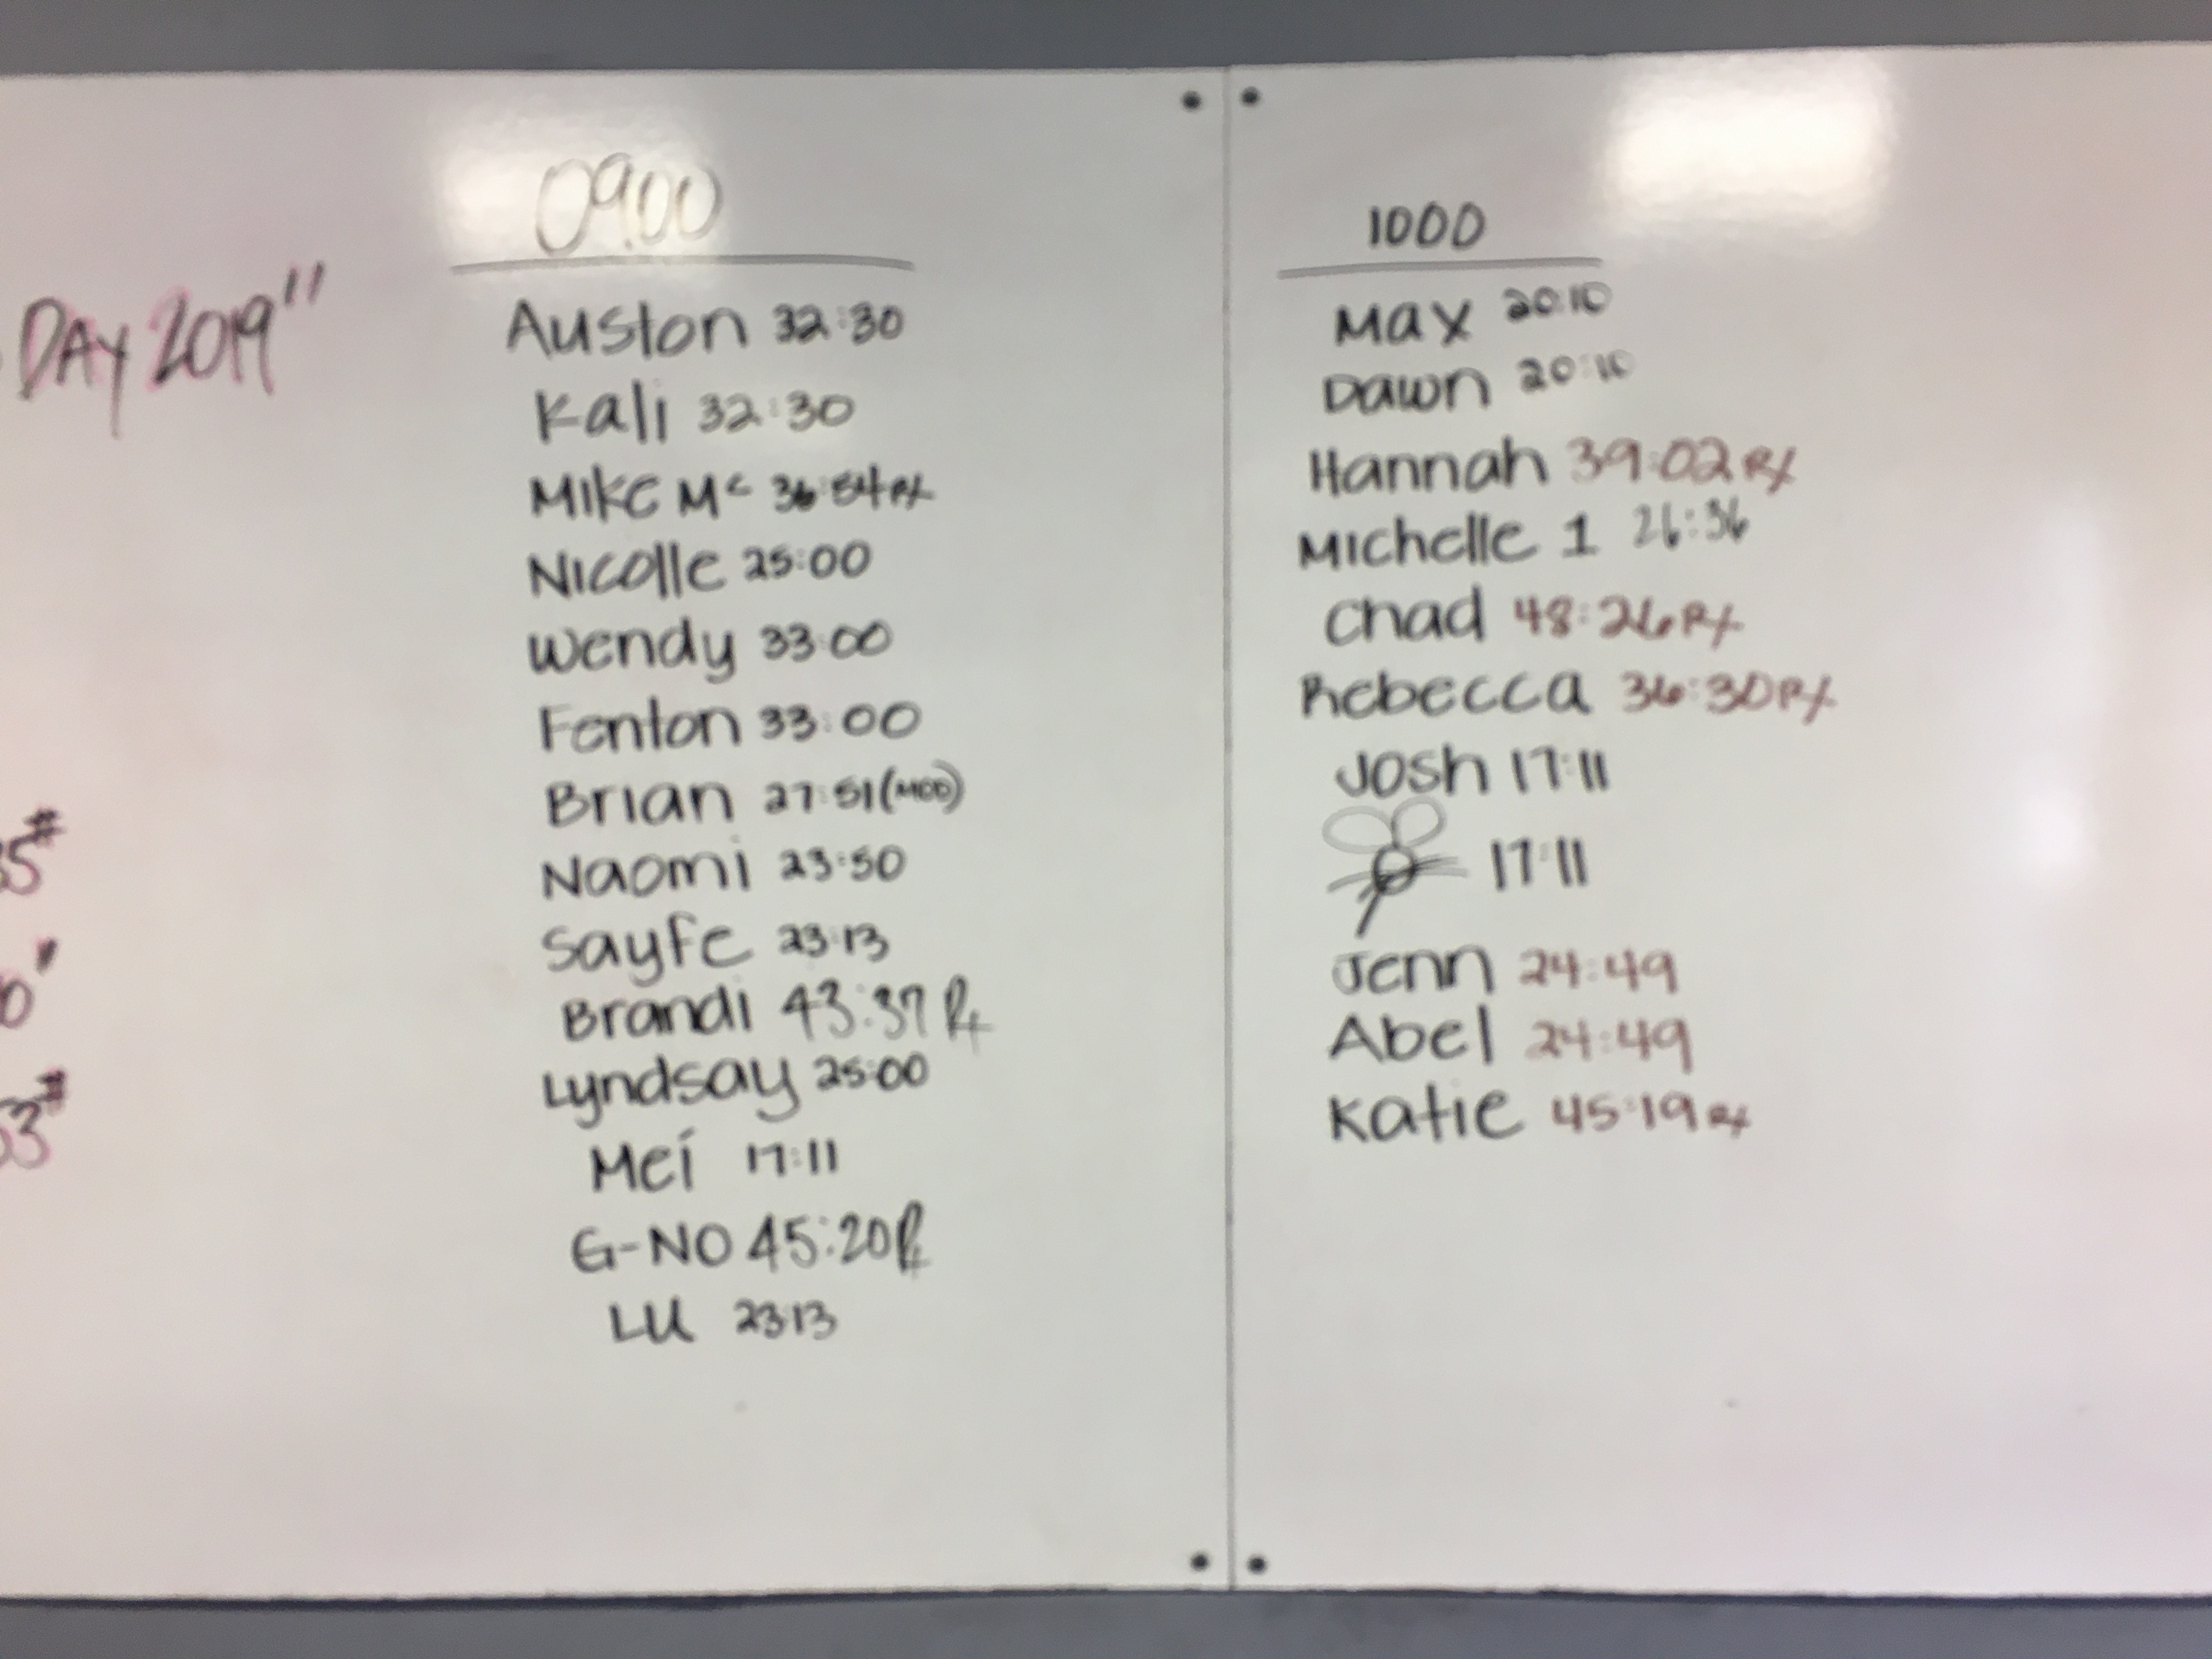 DAY 2019"
5#
0'
3#
0900
Auston 32:30
Kali 32:30
Mike Mc 36:54 Rx
Nicolle 25:00
Wendy 33:00
Fenton 33:00
Brian 27:51 (MOD)
Naomi 23:50
Sayfe 23:13
Brandi 43:37 Rx
Lyndsay 25:00
Mei 17:11
G-NO 45:20 Rx
LU 23:13
1000
Max 20:10
Dawn 20:10
Hannah 39:02 Rx
Michelle 1 26:36
Chad 48:26 Rx
Rebecca 36:30 Rx
Josh 17:11
17:11
Jenn 24:49
Abel 24:49
Katie 45:19 Rx